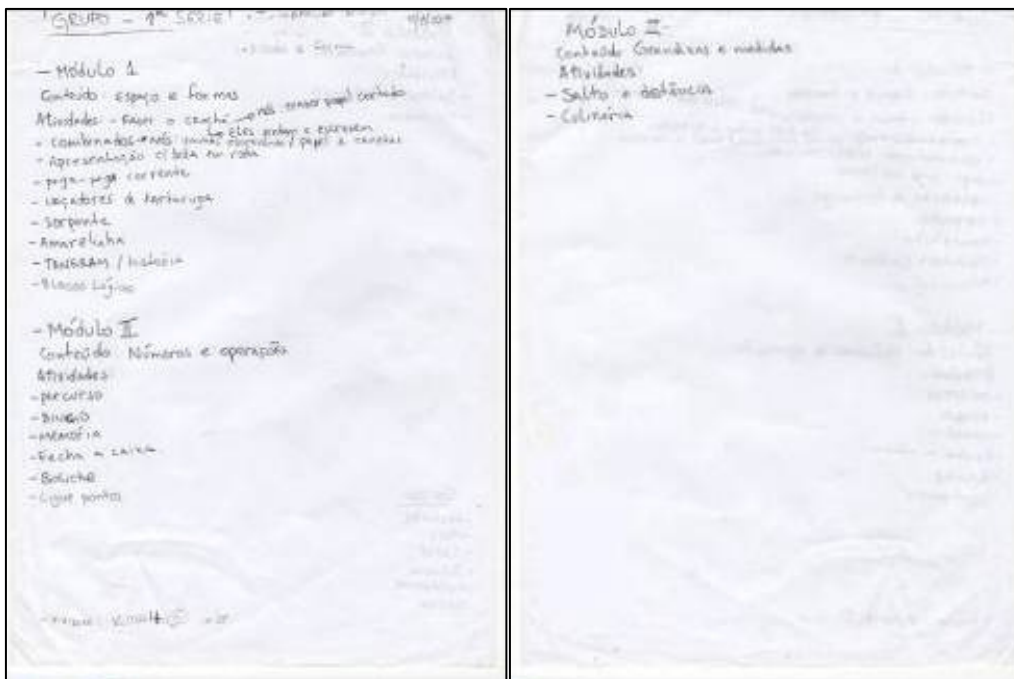 GRUPO - 1ª SÉRIE
- Módulo 1
Conteúdo: espaço e formas
Atividades - Fazer o crachá → nós papel cortado
- Combinados → nós / papel e canetas
→ eles
- Apresentação c/ bola em roda
- pega-pega corrente
- caçadores de tartaruga
- Serpente
- Amarelinha
- TANGRAM / história
- Blocos Lógicos
- Módulo II
Conteúdo: Números e operação
Atividades:
- percurso
- BINGO
- MEMÓRIA
- Fecha a caixa
- Boliche
- Ligue pontos
Módulo III
Conteúdo Grandezas e medidas
Atividades:
- Salto a distância
- Culinária